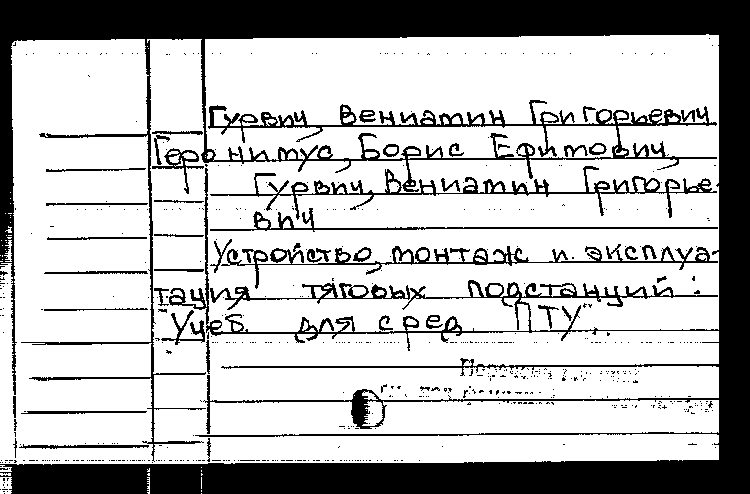 Гурвич, Вениамин Григорьевич
Геронимус, Борис Ефимович,
Гурвич, Вениамин Григорье-
вич
Устройство, монтаж и эксплуа-
тация тяговых подстанций:
Учеб. для сред. ПТУ.